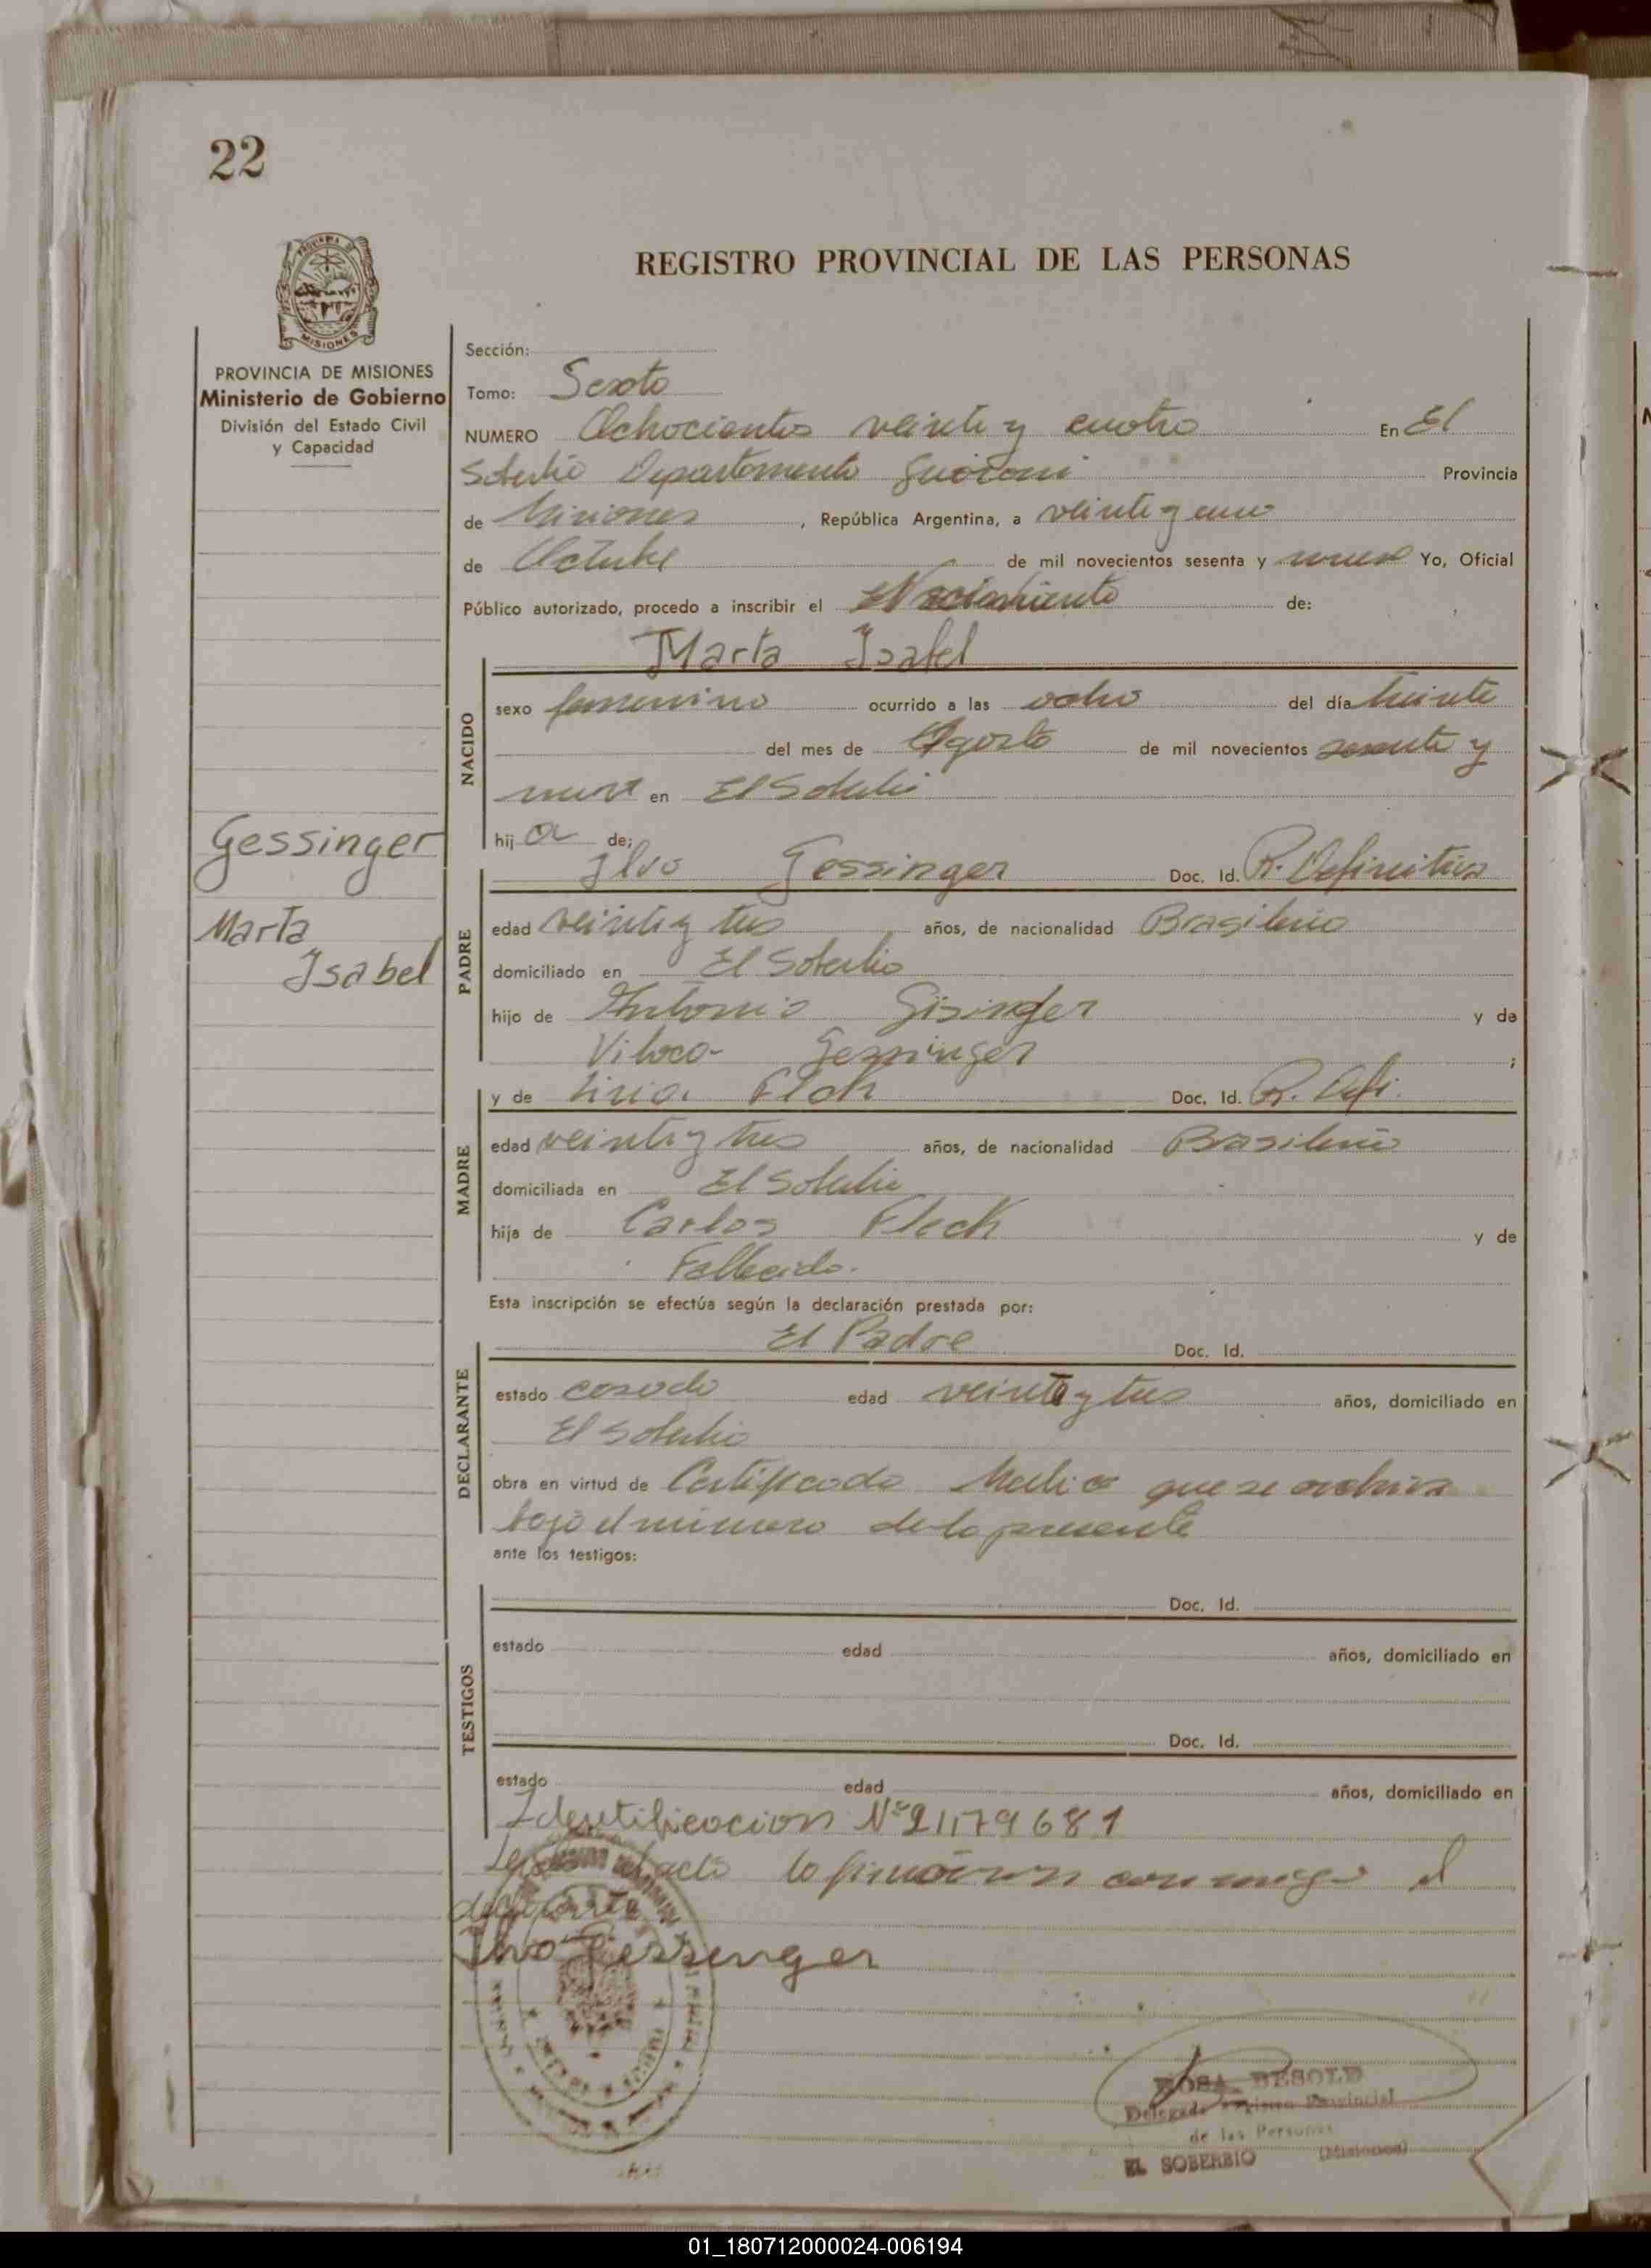 22
REGISTRO PROVINCIAL DE LAS PERSONAS
MISIONES
PROVINCIA DE MISIONES
Ministerio de Gobierno
División del Estado Civil
y Capacidad
Gessinger
Marta
Isabel
Sección:
Tomo: Sexto
NUMERO Ochocientos veinte y cuatro En El
Soberbio Departamento Guarani Provincia
de Misiones, República Argentina, a veinte y
de Octubre de mil novecientos sesenta y nueve Yo, Oficial
Público autorizado, procedo a inscribir el Nacimiento de:
Marta Isabel
NACIDO
sexo femenino ocurrido a las ocho del día treinta
del mes de Agosto de mil novecientos sesenta y
nueve en El Soberbio
hij a de:
Ilvo Gessinger Doc. Id. R. Definitiva
PADRE
edad veinte y tres años, de nacionalidad Brasileño
domiciliado en El Soberbio
hijo de Antonio y de
Gessinger ;
y de Doc. Id. R. Defi.
MADRE
edad veinte y tres años, de nacionalidad Brasileño
domiciliada en El Soberbio
hija de Carlos Fleck y de
Fallecida.
Esta inscripción se efectúa según la declaración prestada por:
El Padre Doc. Id.
DECLARANTE
estado casado edad veinte y tres años, domiciliado en
El Soberbio
obra en virtud de Certificado Medico que se archiva
bajo el numero de la presente
ante los testigos:
TESTIGOS
Doc. Id.
estado edad años, domiciliado en
Doc. Id.
estado edad años, domiciliado en
Identificacion Nº 21179681
acta la firmaron conmigo el
declarante
Ilvo Gessinger
ROSA BESOLD
Delegada Provincial
de las Personas
EL SOBERBIO (Misiones)
01_180712000024-006194